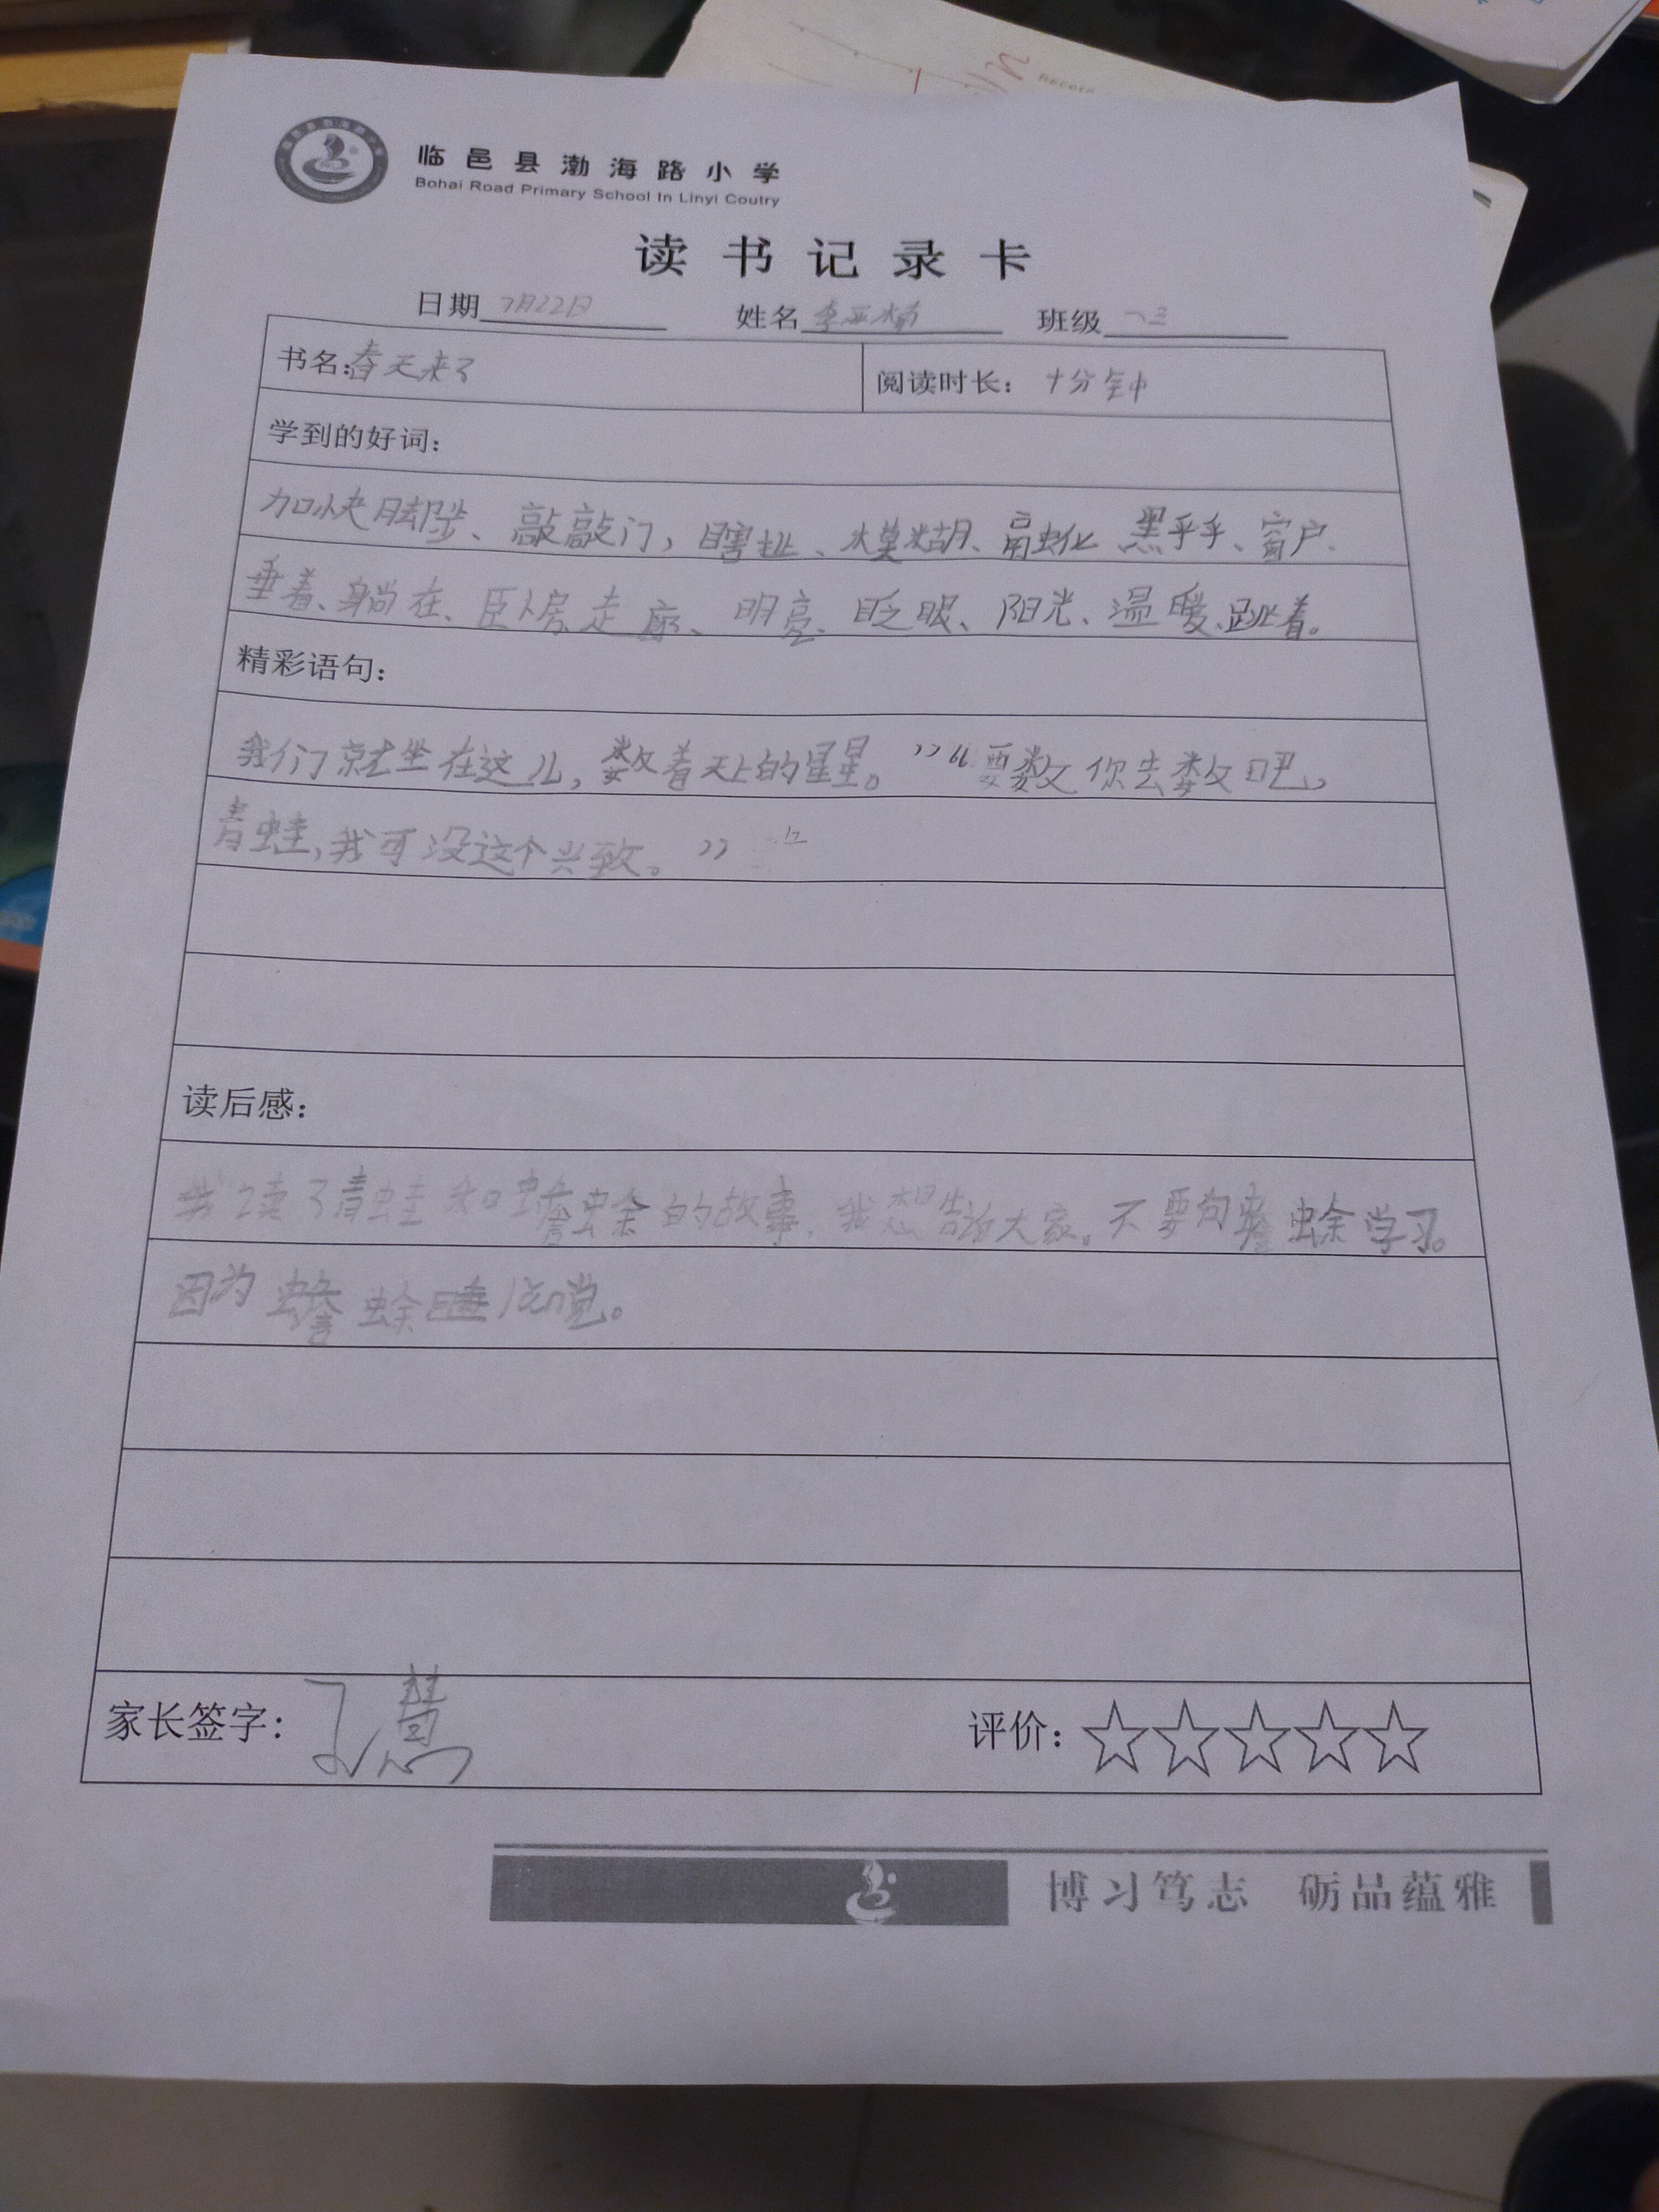 临邑县渤海路小学
Bohai Road Primary School In Linyi Coutry
读书记录卡
日期 7月22日 姓名 李亚楠 班级 一三
书名:春天来了 阅读时长: 十分钟
学到的好词:
加快脚步、敲敲门,瞎扯、模糊、融化 黑乎乎、窗户.
垂着、躺在、卧房走廊、明亮、眨眼、阳光、温暖、跳着。
精彩语句:
我们就坐在这儿,数着天上的星星。””“要数你去数吧,
青蛙,我可没这个兴致。”
读后感:
我读了青蛙和蟾蜍的故事.我想告诉大家。不要向蟾蜍学习。
因为蟾蜍睡懒觉。
家长签字: 慧 评价:☆☆☆☆☆
博习笃志 砺品蕴雅